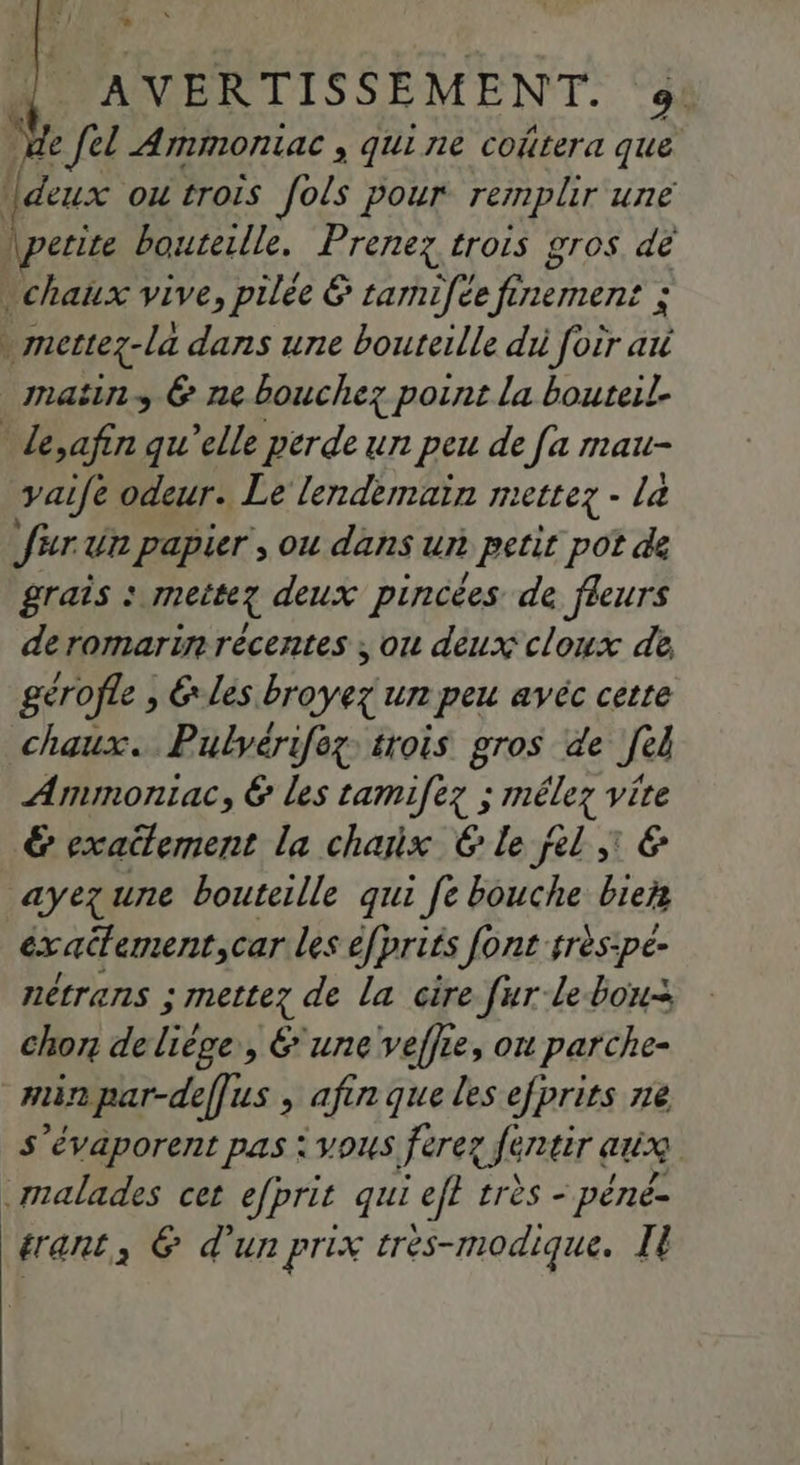 AVERTISSEMENT. 9
de ſel Ammoniac, qui ne coûtera que
deux ou trois ſols pour remplir une
petite bouteille. Prenez trois gros de
chaux vive, pilée & tamiſée finement ;
mettez-là dans une bouteille du ſoir au
matin, & ne bouchez point la bouteil-
le, afin qu'elle perde un peu de ſa mau-
vaiſe odeur. Le lendemain mettez-là
ſur un papier, ou dans un petit pot de
grais : mettez deux pincées de fleurs
de romarin récentes, ou deux cloux de
gérofle, & les broyez un peu avéc cette
chaux. Pulvériſez trois gros de ſel
Ammoniac, & les tamiſez ; mêlez vîte
& exactement la chaux & le ſel ; &
ayez une bouteille qui ſe bouche bien
éxactement, car les eſprits ſont très-pé-
nétrans ; mettez de la cire ſur le bou-
chon de liége, & une veſſie, ou parche-
min par-deſſus, afin que les eſprits ne
s'évaporent pas : vous ferez ſentir aux
malades cet eſprit qui eſt très-péné-
trant, & d'un prix très-modique. Il